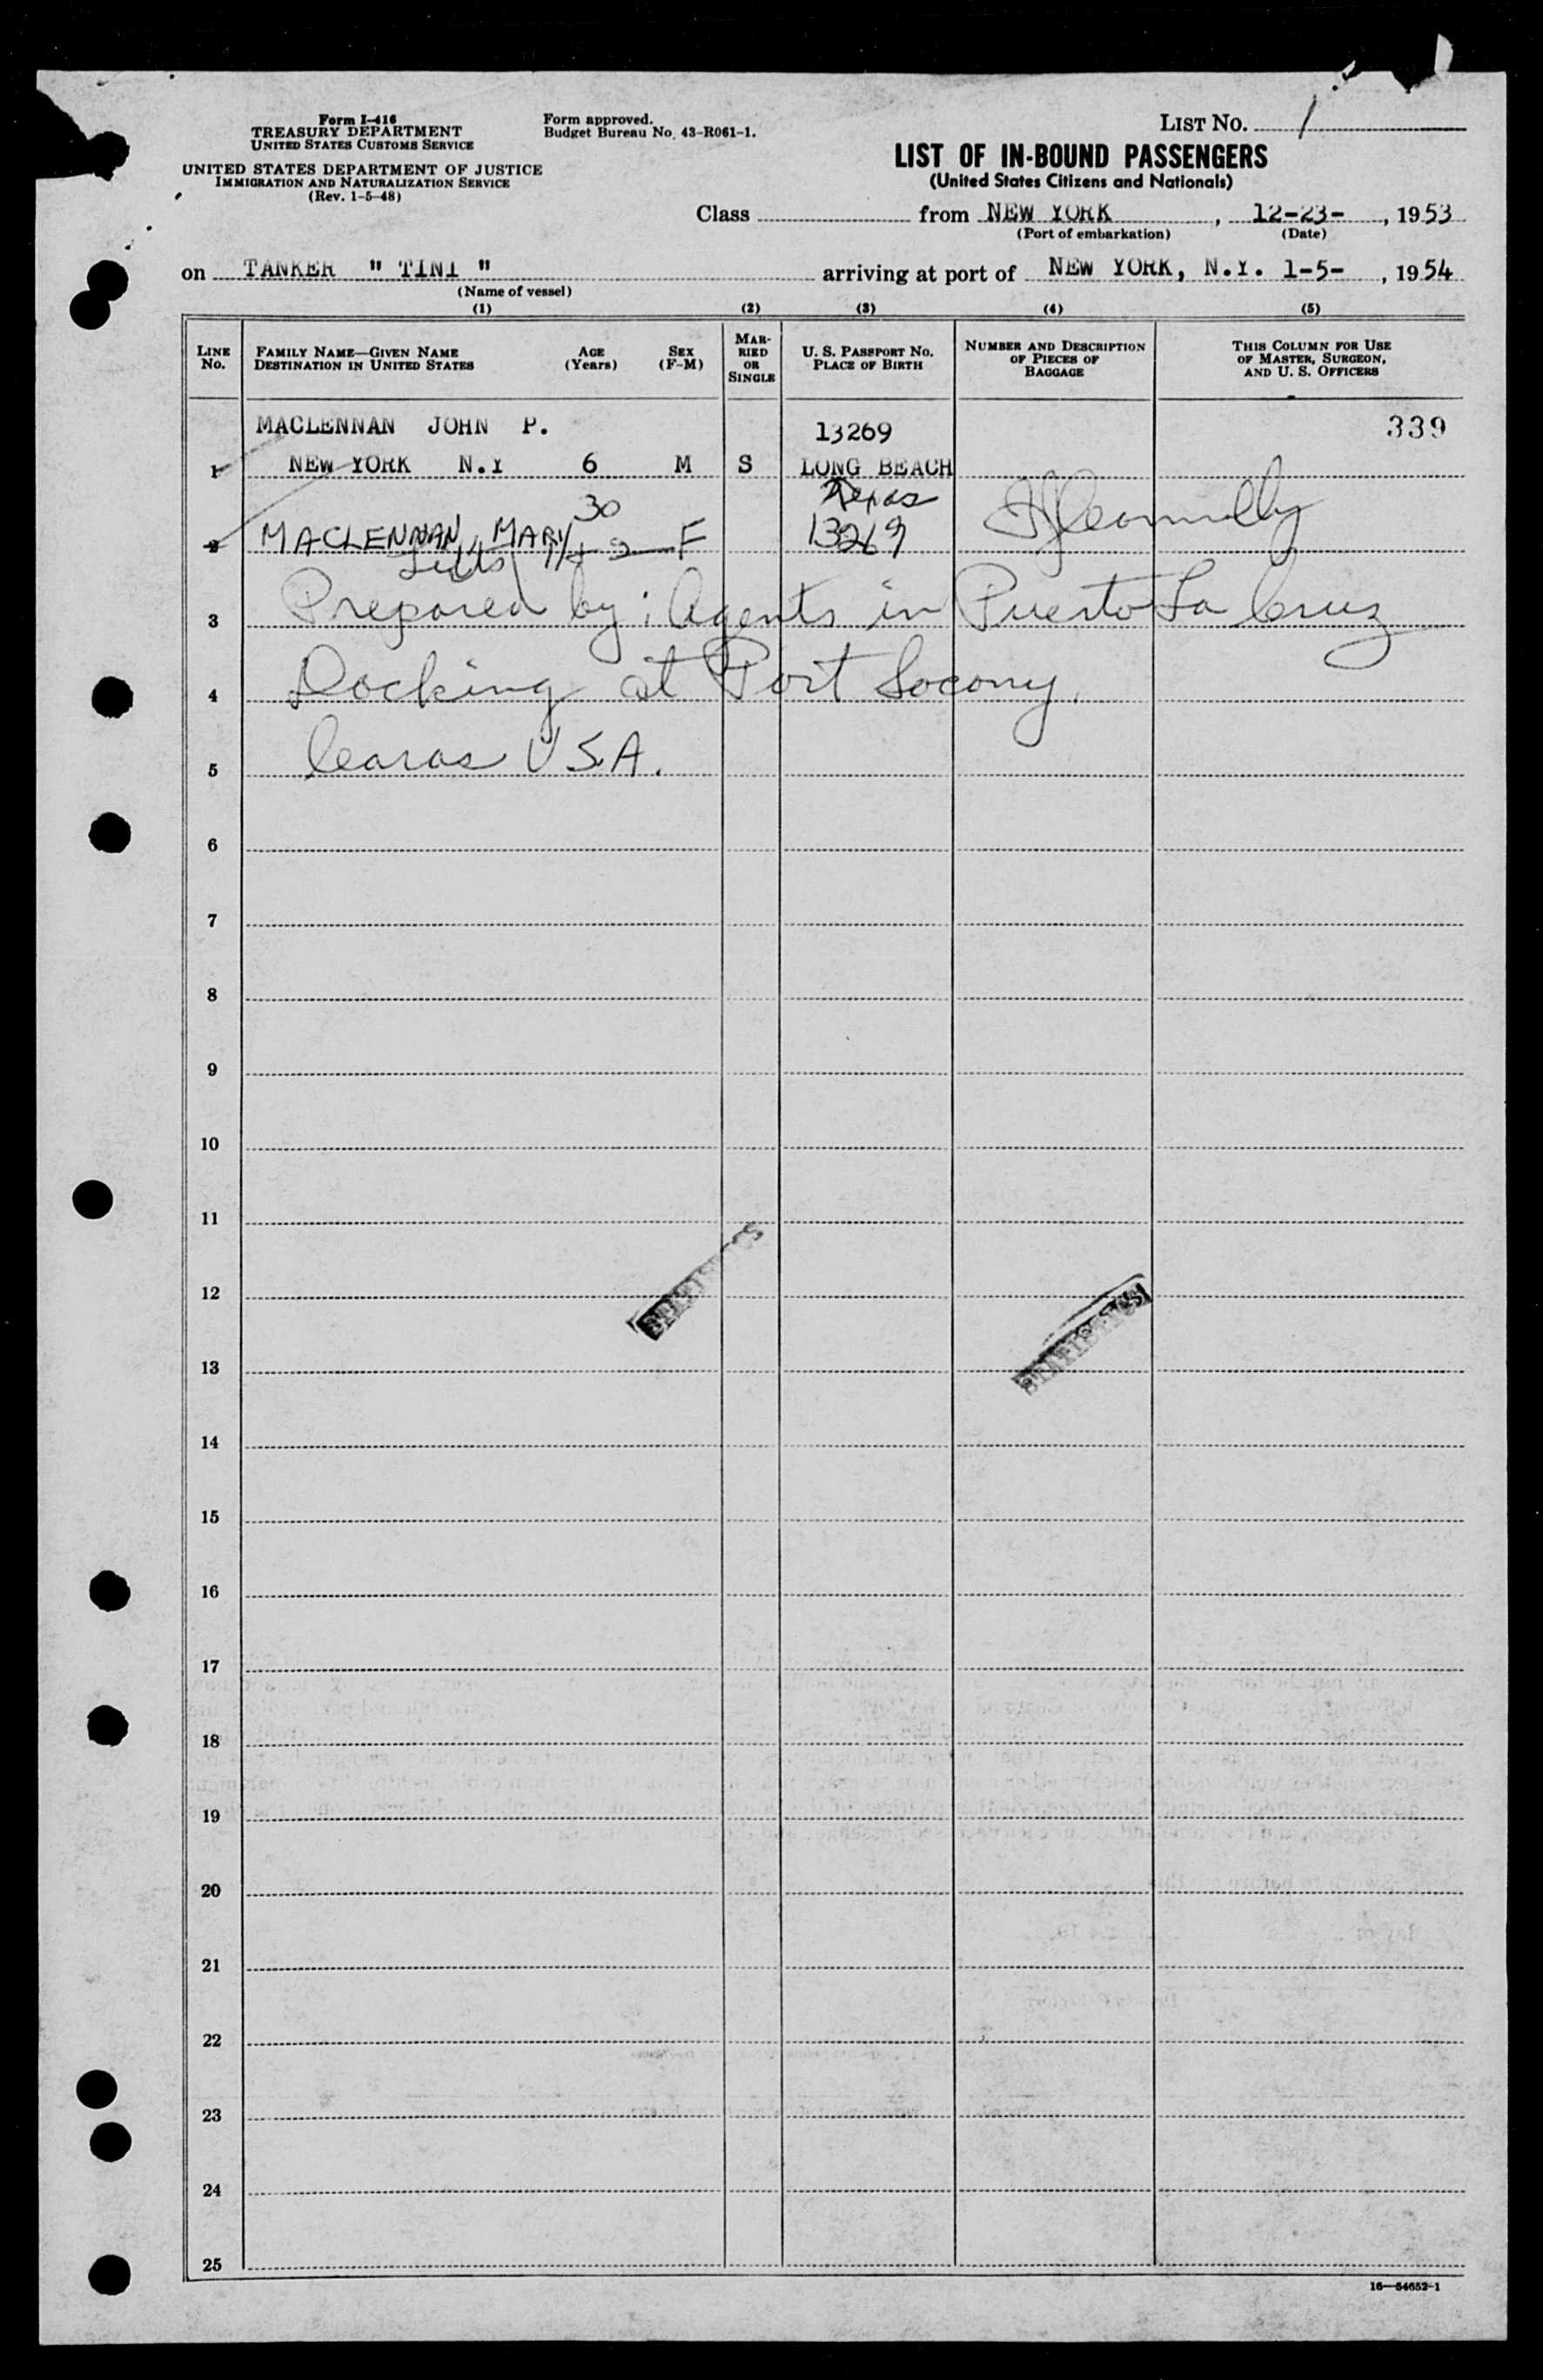 Form I-416
TREASURY DEPARTMENT
UNITED STATES CUSTOMS SERVICE
UNITED STATES DEPARTMENT OF JUSTICE
IMMIGRATION AND NATURALIZATION SERVICE
(Rev. 1-5-48)
Form approved.
Budget Bureau No. 43-R061-1.
LIST NO. 1
LIST OF IN-BOUND PASSENGERS
(United States Citizens and Nationals)
Class from NEW YORK, 12-23-, 1953
(Port of embarkation) (Date)
on TANKER " TINI " arriving at port of NEW YORK, N.Y. 1-5-, 1954
(Name of vessel)
(1) (2) (3) (4) (5)
LINE NO.
FAMILY NAME—GIVEN NAME
DESTINATION IN UNITED STATES
AGE (Years)
SEX (F-M)
MARRIED OR SINGLE
U. S. PASSPORT NO.
PLACE OF BIRTH
NUMBER AND DESCRIPTION OF PIECES OF BAGGAGE
THIS COLUMN FOR USE OF MASTER, SURGEON, AND U. S. OFFICERS
MACLENNAN JOHN P. 13269 339
1 NEW YORK N.Y 6 M S LONG BEACH
Texas
30
2 MACLENNAN, MARY F 13269
3 Prepared by: Agents in Puerto La Cruz
4 Docking at Port Socony.
5 USA.
6
7
8
9
10
11
12
13
STATISTICS
STATISTICS
14
15
16
17
18
19
20
21
22
23
24
25
16—54652-1